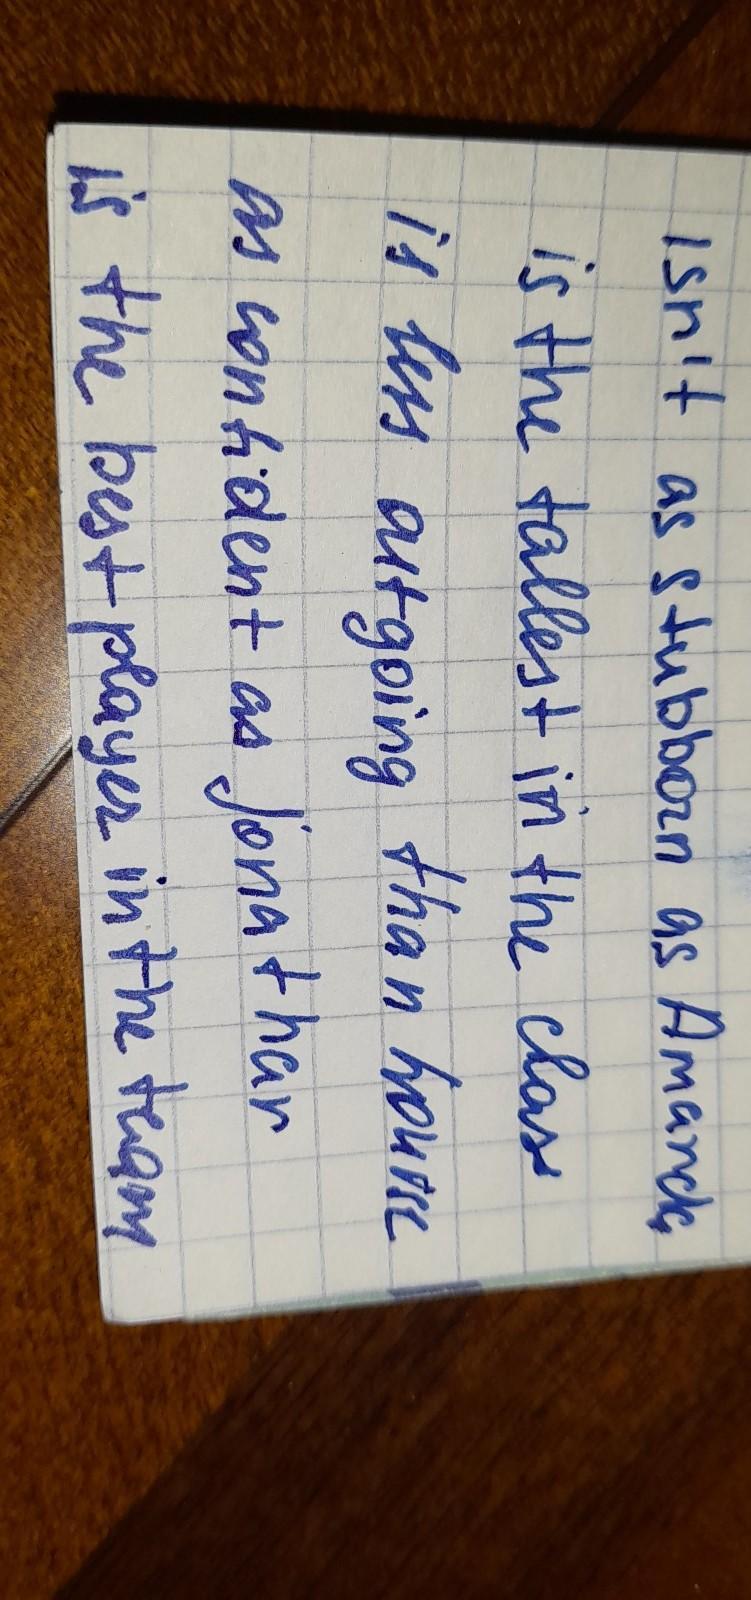 isn't as stubborn as Amanda
is the tallest in the class
is less outgoing than
as confident as jonathan
is the best player in the team